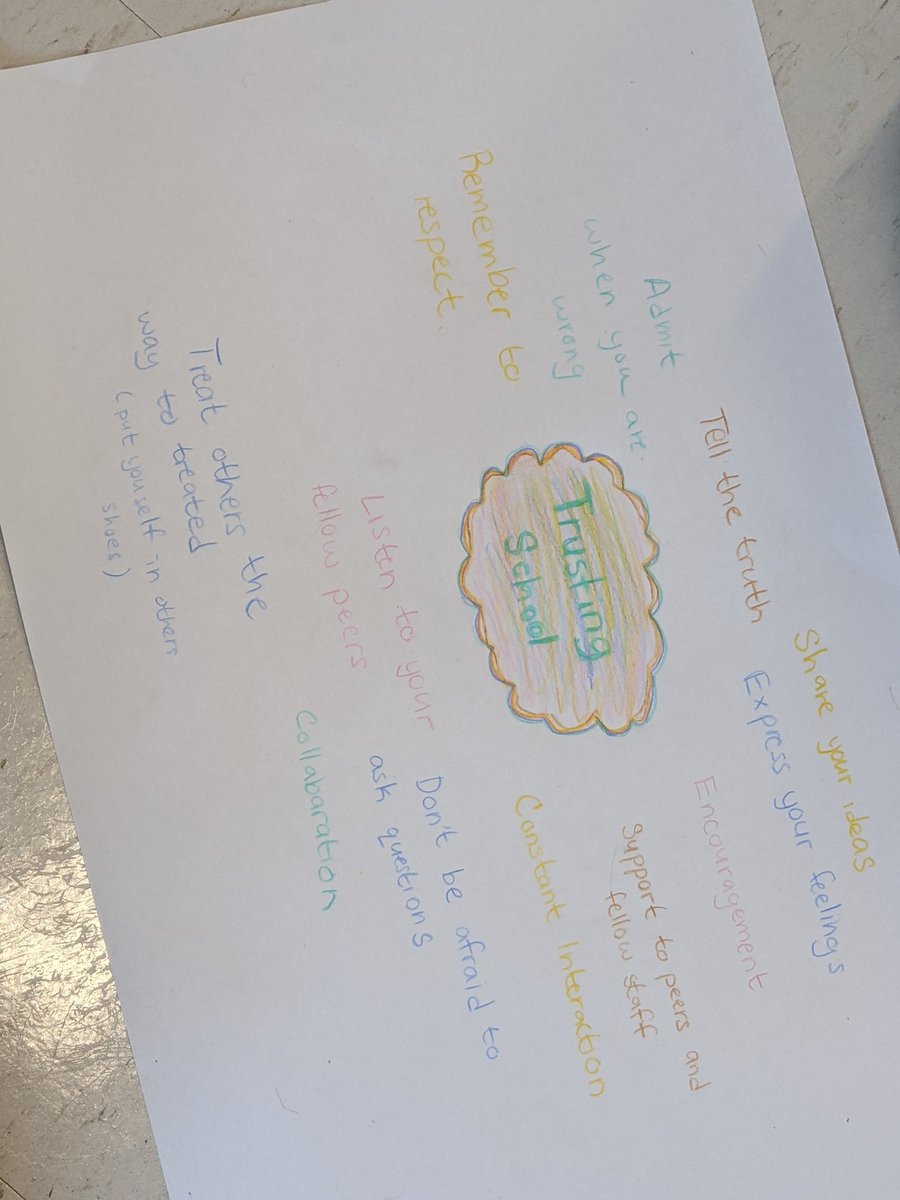 Share your ideas
Express your feelings
Tell the truth
Encouragement
Admit
when you are.
wrong
Support to peers and
fellow staff
Remember to
respect.
Trusting
School
Constant Interaction
Listen to your
fellow peers
Don't be afraid to
ask questions
Collabaration
Treat others the
way to treated
(put youself in others
shoes)